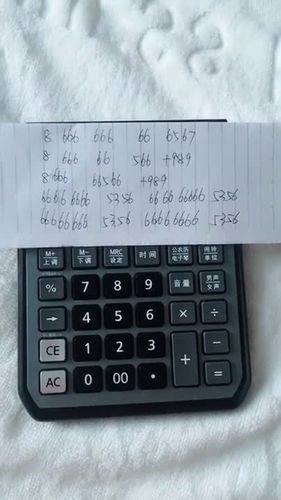 8 666 666 66 6567
8 666 66 566 +989
8 666 66566 +989
6666 6666 5356 6666 66666 5356
6666666 5356 66666666 5356
M+ 上调 M- 下调 MRC 设定 时间 公农历 电子琴 闹铃 单位
% 7 8 9 音量 男声 女声
→ 4 5 6 × ÷
CE 1 2 3 + −
AC 0 00 • =